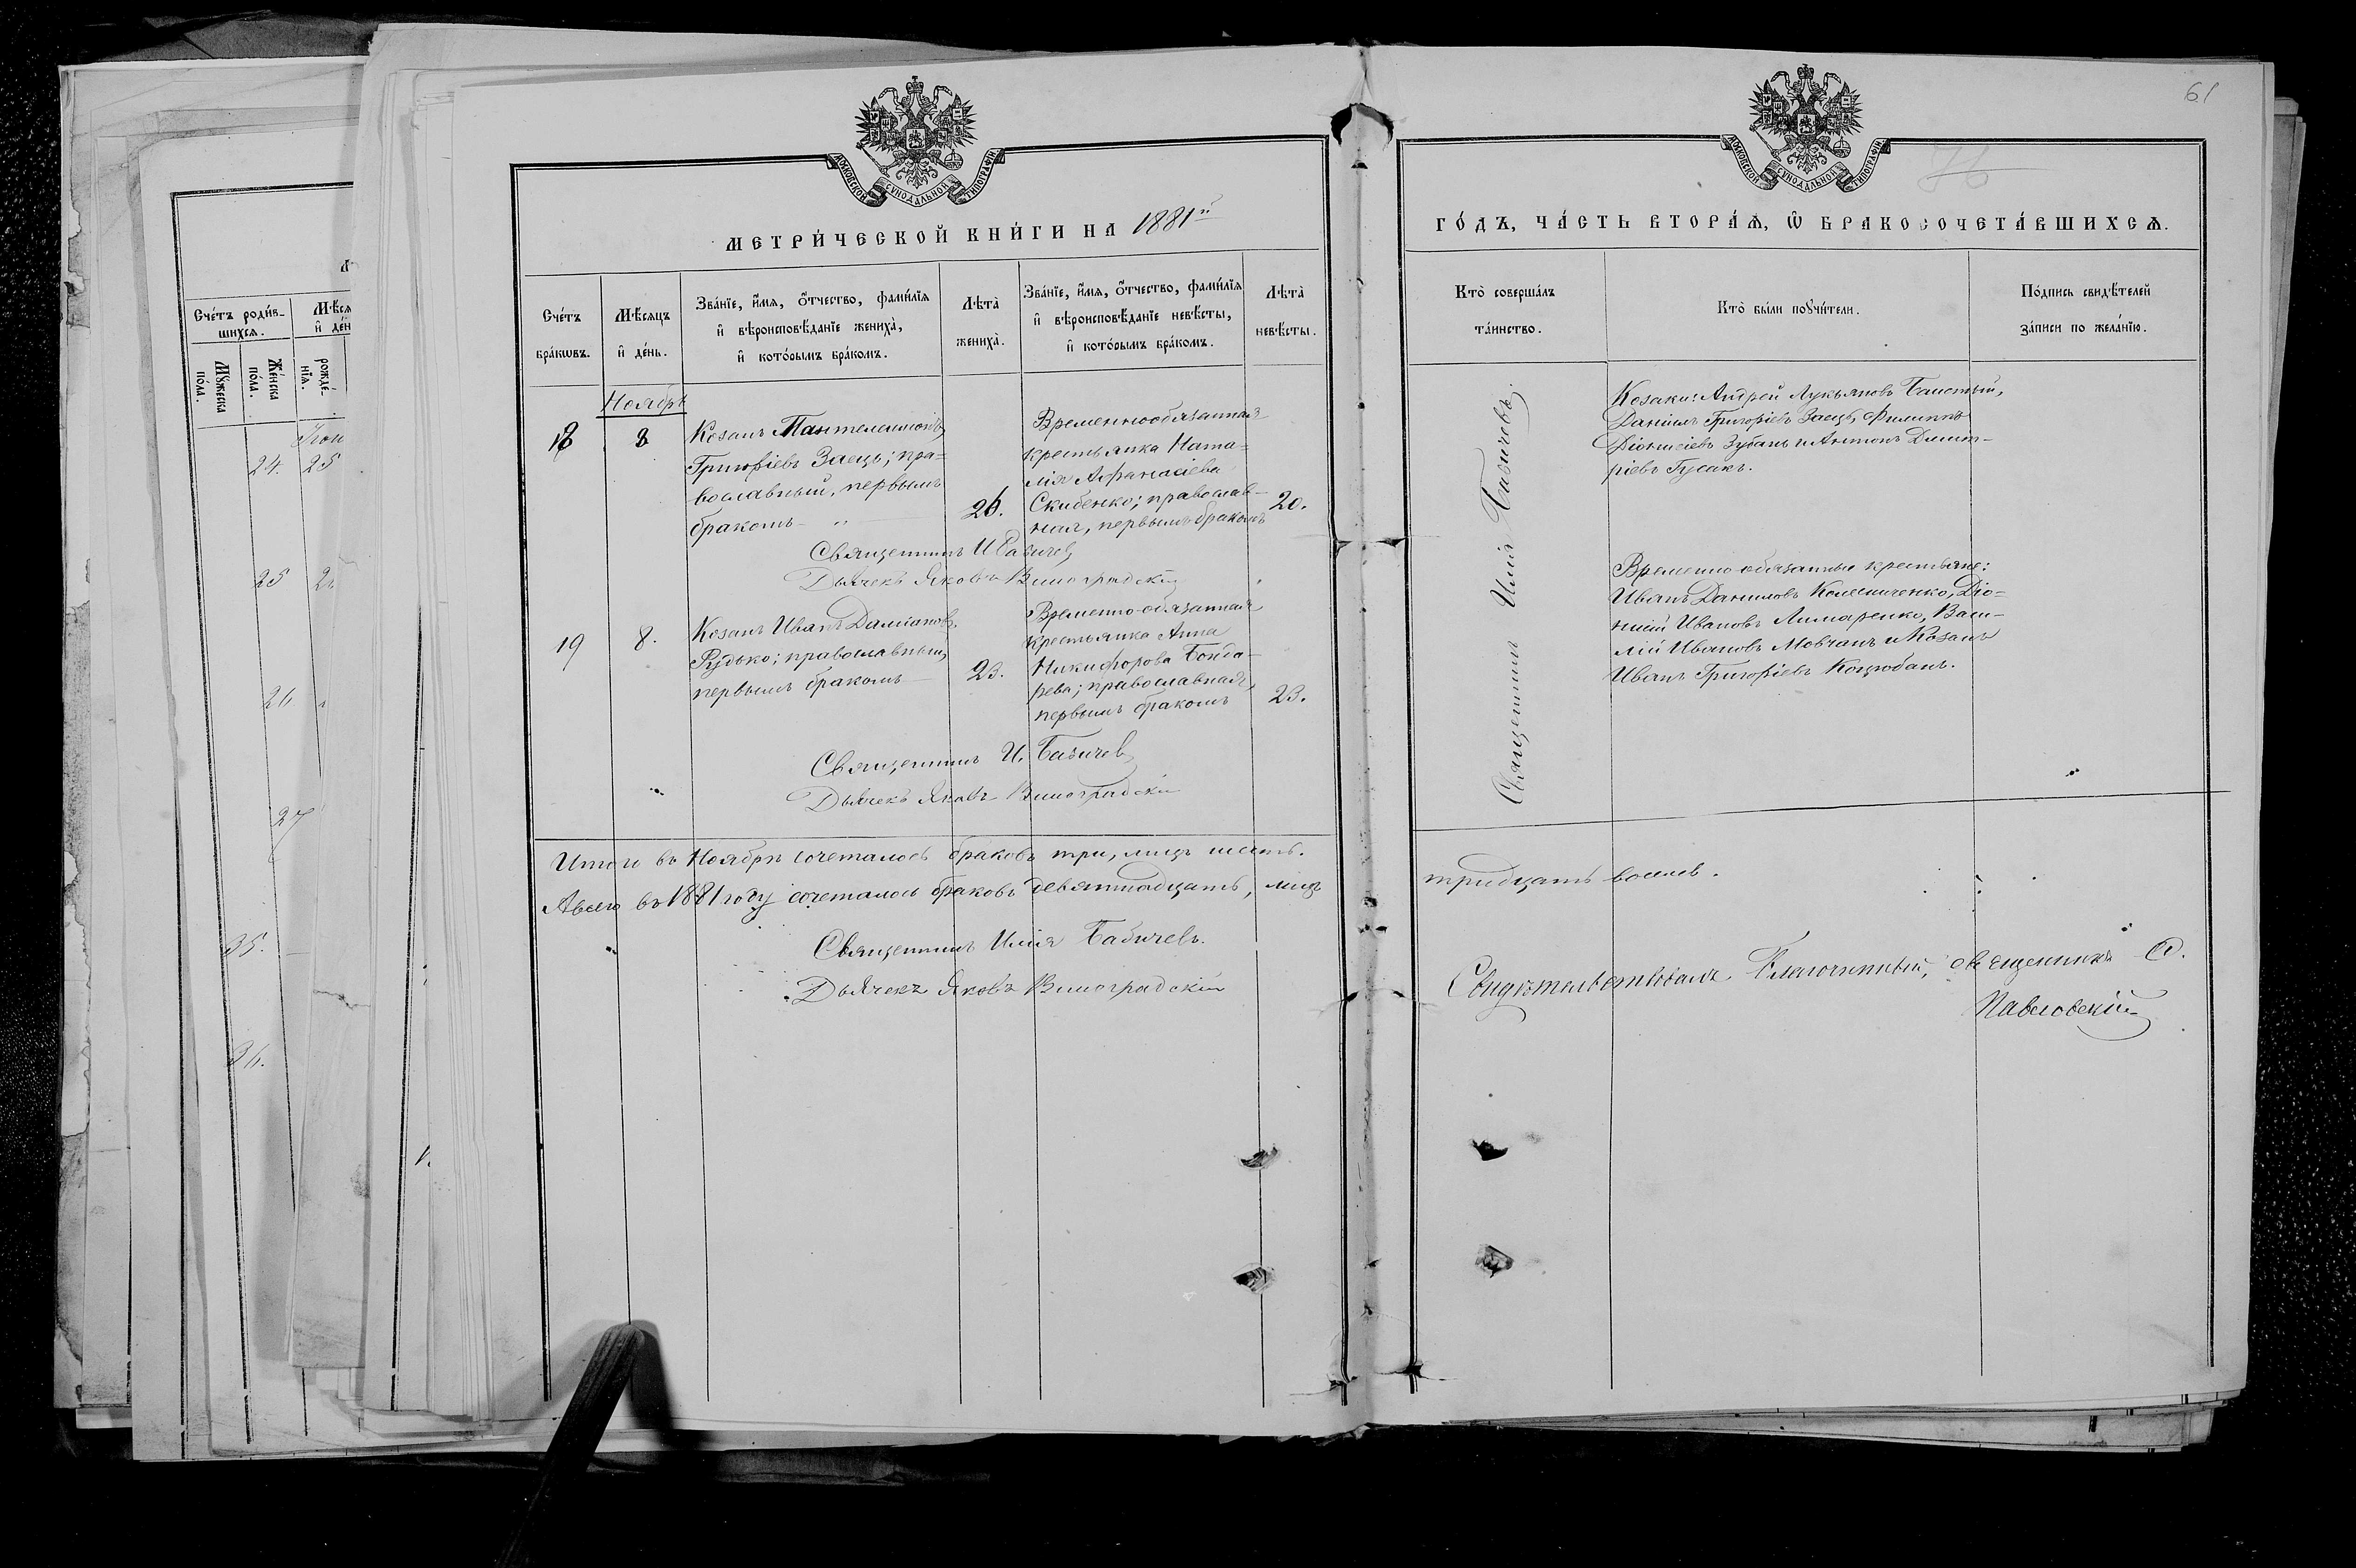 МОСКОВСКОЙ СУНОДАЛЬНОЙ ТИПОГРАФІИ
МЕТРИ́ЧЕСКОЙ КНИ́ГИ НА 1881й
Сче́тъ бра́кωвъ.
Мѣ́сяцъ и҆ де́нь.
Зва́нїе, и҆́мѧ, ѻ҆́тчество, фами́лїѧ и҆ вѣроисповѣ́данїе жениха̀, и҆ кото́рымъ бра́комъ.
Лѣ́та жениха̀.
Зва́нїе, и҆́мѧ, ѻ҆́тчество, фами́лїѧ и҆ вѣроисповѣ́данїе невѣ́сты, и҆ кото́рымъ бра́комъ.
Лѣ́та невѣ́сты.
Ноябрь
18
8
Козакъ Пантелеимонъ
Григоріевъ Заецъ; пра-
вославный, первымъ
бракомъ
26.
Временнообязанная
крестьянка Ната-
лія Афанасіева
Скибенко; православ-
ная, первымъ бракомъ
20.
Священникъ И Бабичев
Дьячекъ Яковъ Виноградскій
19
8.
Козакъ Иванъ Даміановъ
Рудько; православный,
первымъ бракомъ
23.
Временно-обязанная
крестьянка Анна
Никифорова Бонда-
рева; православная,
первымъ бракомъ
23.
Священникъ И. Бабичев
Дьячекъ Яковъ Виноградскій
Итого въ Ноябрѣ сочеталось браковъ три, лицъ шесть.
А всего въ 1881 году сочеталось браковъ девятнадцать, лицъ
Священникъ Илія Бабичевъ.
Дьячекъ Яковъ Виноградскій
61
МОСКОВСКОЙ СУНОДАЛЬНОЙ ТИПОГРАФІИ
ГО́ДЪ, ЧА́СТЬ ВТОРА́Ѧ, Ѽ БРАКОСОЧЕТА́ВШИХСѦ.
Кто̀ соверша́лъ та́инство.
Кто̀ бы́ли пору́чители.
По́дпись свидѣ́телей за́писи по жела́нїю.
Священникъ Илія Бабичевъ.
Козаки: Андрей Лукьяновъ
Даніилъ Григоріевъ Заецъ, Филиппъ
Діонисіевъ Зубань и Антонъ Димит-
ріевъ Гусакъ.
Временно-обязанные крестьяне:
Иванъ Даниловъ Колесниченко, Діо-
нисій Ивановъ Лимаренко, Васи-
лій Ивановъ Мовчанъ и Козакъ
Иванъ Григоріевъ Коцюбанъ.
тридцать восемь.
Свидѣтельствовалъ Благочинный, священникъ
Павловскій
Сче́тъ роди́в-
шихсѧ.
Мꙋ́жеска по́ла.
Же́нска по́ла.
рожде́-
нїѧ.
24. 25
25
26
27
35.
36.